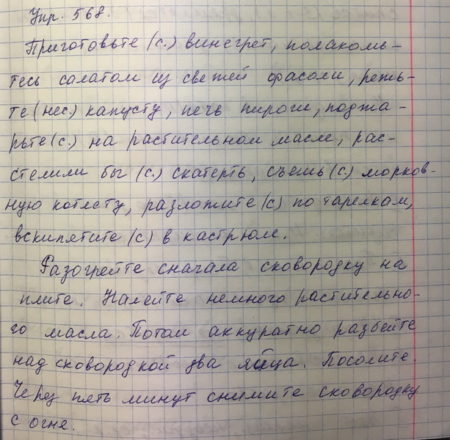 Упр. 568.
Приготовьте (с.) винегрет, полакомь-
тесь салатом из свежей фасоли, режь-
те (нес) капусту, печь пироги, поджа-
рьте (с.) на растительном масле, рас-
стелили бы (с.) скатерть, съешь (с.) морков-
ную котлету, разложите (с) по тарелкам,
вскипятите (с) в кастрюле.
Разогрейте сначала сковородку на
плите. Налейте немного растительно-
го масла. Потом аккуратно разбейте
над сковородкой два яйца. Посолите.
Через пять минут снимите сковородку
с огня.